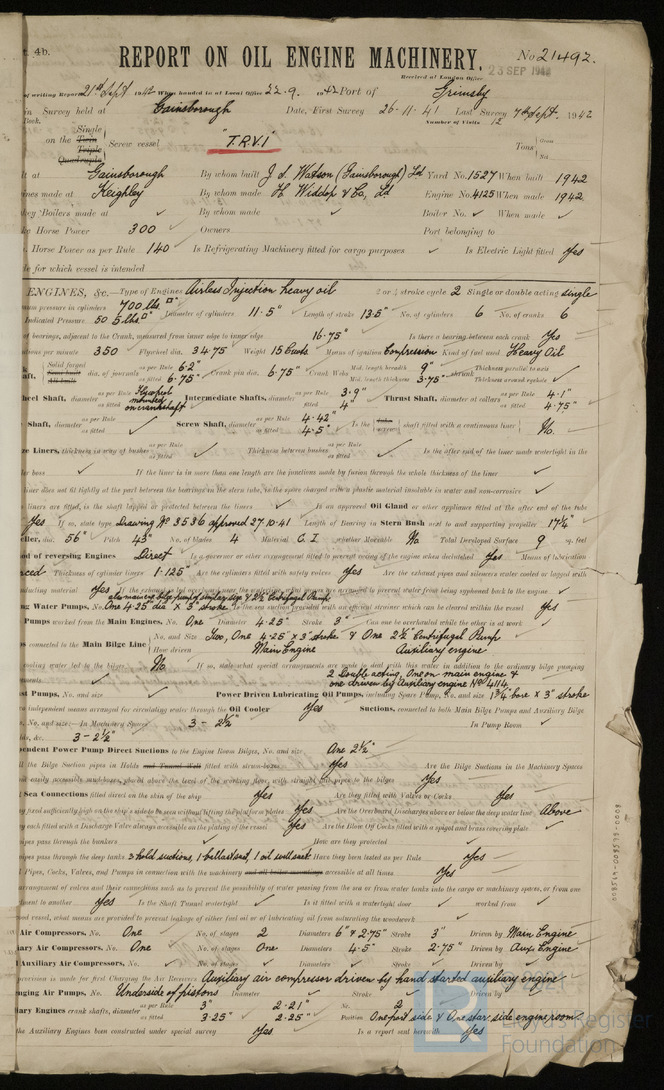 4b.
REPORT ON OIL ENGINE MACHINERY.
No 21492.
Received at London Office 23 SEP 1942
of writing Report 21st Sept 1942 When handed in at Local Office 22.9. 1942 Port of Grimsby
in Survey held at Gainsborough Date, First Survey 26-11-41 Last Survey 7th Sept. 1942
Book. Number of Visits 12
on the Single Twin Triple Quadruple Screw vessel "T.R.V.1" Tons Gross Net
lt at Gainsborough By whom built J. S. Watson (Gainsborough) Ltd Yard No. 1527 When built 1942
ines made at Keighley By whom made H. Widdop & Co, Ltd Engine No. 4125 When made 1942
key Boilers made at ✓ By whom made ✓ Boiler No. ✓ When made ✓
ke Horse Power 300 Owners Port belonging to
. Horse Power as per Rule 140 Is Refrigerating Machinery fitted for cargo purposes ✓ Is Electric Light fitted Yes
de for which vessel is intended
ENGINES, &c.—Type of Engines Airless Injection heavy oil 2 or 4 stroke cycle 2 Single or double acting single
mum pressure in cylinders 700 lbs □" Diameter of cylinders 11.5" Length of stroke 13.5" No. of cylinders 6 No. of cranks 6
Indicated Pressure 50.5 lbs □"
of bearings, adjacent to the Crank, measured from inner edge to inner edge 16.75" Is there a bearing between each crank Yes
utions per minute 350 Flywheel dia. 34.75 Weight 15 Cwts. Means of ignition Compression Kind of fuel used Heavy Oil
Solid forged dia. of journals as per Rule 6.2" as fitted 6.75" Crank pin dia. 6.75" Crank Webs Mid. length breadth 9" Mid. length thickness 3.75" shrunk Thickness parallel to axis Thickness around eyehole
heel Shaft, diameter as per Rule as fitted Flywheel mounted on crankshaft Intermediate Shafts, diameter as per Rule 3.9" as fitted 4" Thrust Shaft, diameter at collars as per Rule 4.1" as fitted 4.75"
Shaft, diameter as per Rule as fitted ✓ Screw Shaft, diameter as per Rule 4.42" as fitted 4.5" Is the screw shaft fitted with a continuous liner No.
ze Liners, thickness in way of bushes as per Rule as fitted ✓ Thickness between bushes as per Rule as fitted ✓ Is the after end of the liner made watertight in the
er boss ✓ If the liner is in more than one length are the junctions made by fusion through the whole thickness of the liner ✓
liner does not fit tightly at the part between the bearings in the stern tube, is the space charged with a plastic material insoluble in water and non-corrosive ✓
liners are fitted, is the shaft lapped or protected between the liners ✓ Is an approved Oil Gland or other appliance fitted at the after end of the tube
Yes If so, state type Drawing No 3536 approved 27.10.41 Length of Bearing in Stern Bush next to and supporting propeller 17¼"
eller, dia. 56" Pitch 43" No. of blades 4 Material C.I. whether Moveable No Total Developed Surface 9 sq. feet
od of reversing Engines Direct Is a governor or other arrangement fitted to prevent racing of the engine when declutched Yes Means of lubrication
rced Thickness of cylinder liners 1.125" Are the cylinders fitted with safety valves Yes Are the exhaust pipes and silencers water cooled or lagged with
nducting material Yes If the exhaust is led overboard near the waterline, what means are arranged to prevent water from being syphoned back to the engine ✓
ng Water Pumps, No. One 4.25 dia × 3" stroke Is the sea suction provided with an efficient strainer which can be cleared within the vessel Yes
Pumps worked from the Main Engines, No. One Diameter 4.25" Stroke 3" Can one be overhauled while the other is at work ✓
s connected to the Main Bilge Line No. and Size Two, One 4.25" × 3" stroke & One 2½" Centrifugal Pump
How driven Main Engine Auxiliary engine
ooling water led to the bilges No If so, state what special arrangements are made to deal with this water in addition to the ordinary bilge pumping
ements ✓ 2 Double acting, One on main engine & one driven by Auxiliary engine No 4114
st Pumps, No. and size ✓ Power Driven Lubricating Oil Pumps, including Spare Pump, No. and size 1¾" bore × 3" stroke
o independent means arranged for circulating water through the Oil Cooler Yes Suctions, connected to both Main Bilge Pumps and Auxiliary Bilge
s, No. and size: In Machinery Spaces 3 - 2½" In Pump Room ✓
ds, &c. 3 - 2½"
pendent Power Pump Direct Suctions to the Engine Room Bilges, No. and size One 2½"
ll the Bilge Suction pipes in Holds and Tunnel Well fitted with strum-boxes Yes Are the Bilge Suctions in the Machinery Spaces
om easily accessible mud-boxes, placed above the level of the working floor, with straight tail pipes to the bilges Yes
Sea Connections fitted direct on the skin of the ship Yes Are they fitted with Valves or Cocks Yes
y fixed sufficiently high on the ship's side to be seen without lifting the platform plates Yes Are the Overboard Discharges above or below the deep water line Above
y each fitted with a Discharge Valve always accessible on the plating of the vessel Yes Are the Blow Off Cocks fitted with a spigot and brass covering plate ✓
pipes pass through the bunkers ✓ How are they protected ✓
ipes pass through the deep tanks 3 hold suctions, 1 ballast suct, 1 oil well suct. Have they been tested as per Rule Yes
Pipes, Cocks, Valves, and Pumps in connection with the machinery accessible at all times Yes
arrangement of valves and their connections such as to prevent the possibility of water passing from the sea or from water tanks into the cargo or machinery spaces, or from one
tment to another Yes Is the Shaft Tunnel watertight ✓ Is it fitted with a watertight door ✓ worked from ✓
ood vessel, what means are provided to prevent leakage of either fuel oil or of lubricating oil from saturating the woodwork ✓
Air Compressors, No. One No. of stages 2 Diameters 6" & 2.75" Stroke 3" Driven by Main Engine
iary Air Compressors, No. One No. of stages One Diameters 4.5" Stroke 2.75" Driven by Aux. Engine
l Auxiliary Air Compressors, No. ✓ No. of stages ✓ Diameters ✓ Stroke ✓ Driven by ✓
provision is made for first Charging the Air Receivers Auxiliary air compressor driven by hand started auxiliary engine
nging Air Pumps, No. Underside of pistons Diameter ✓ Stroke ✓ Driven by
iary Engines crank shafts, diameter as per Rule 3" 2.21" No. 2
as fitted 3.25" 2.25" Position One port side & One star side engine room.
the Auxiliary Engines been constructed under special survey Yes Is a report sent herewith Yes
008569-008579-0008
© 2021
Lloyd's Register
Foundation